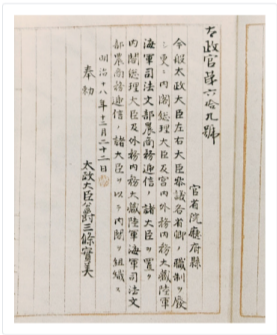 太政官第六拾九號
官省院廳府縣
今般太政大臣左右大臣參議各省卿ノ職制ヲ廢
シ更ニ内閣總理大臣及宮内外務内務大藏陸軍
海軍司法文部農商務遞信ノ諸大臣ヲ置ク
内閣總理大臣及外務内務大藏陸軍海軍司法文
部農商務遞信ノ諸大臣ヲ以テ内閣ヲ組織ス
明治十八年十二月二十二日
奉勅
太政大臣公爵三條實美